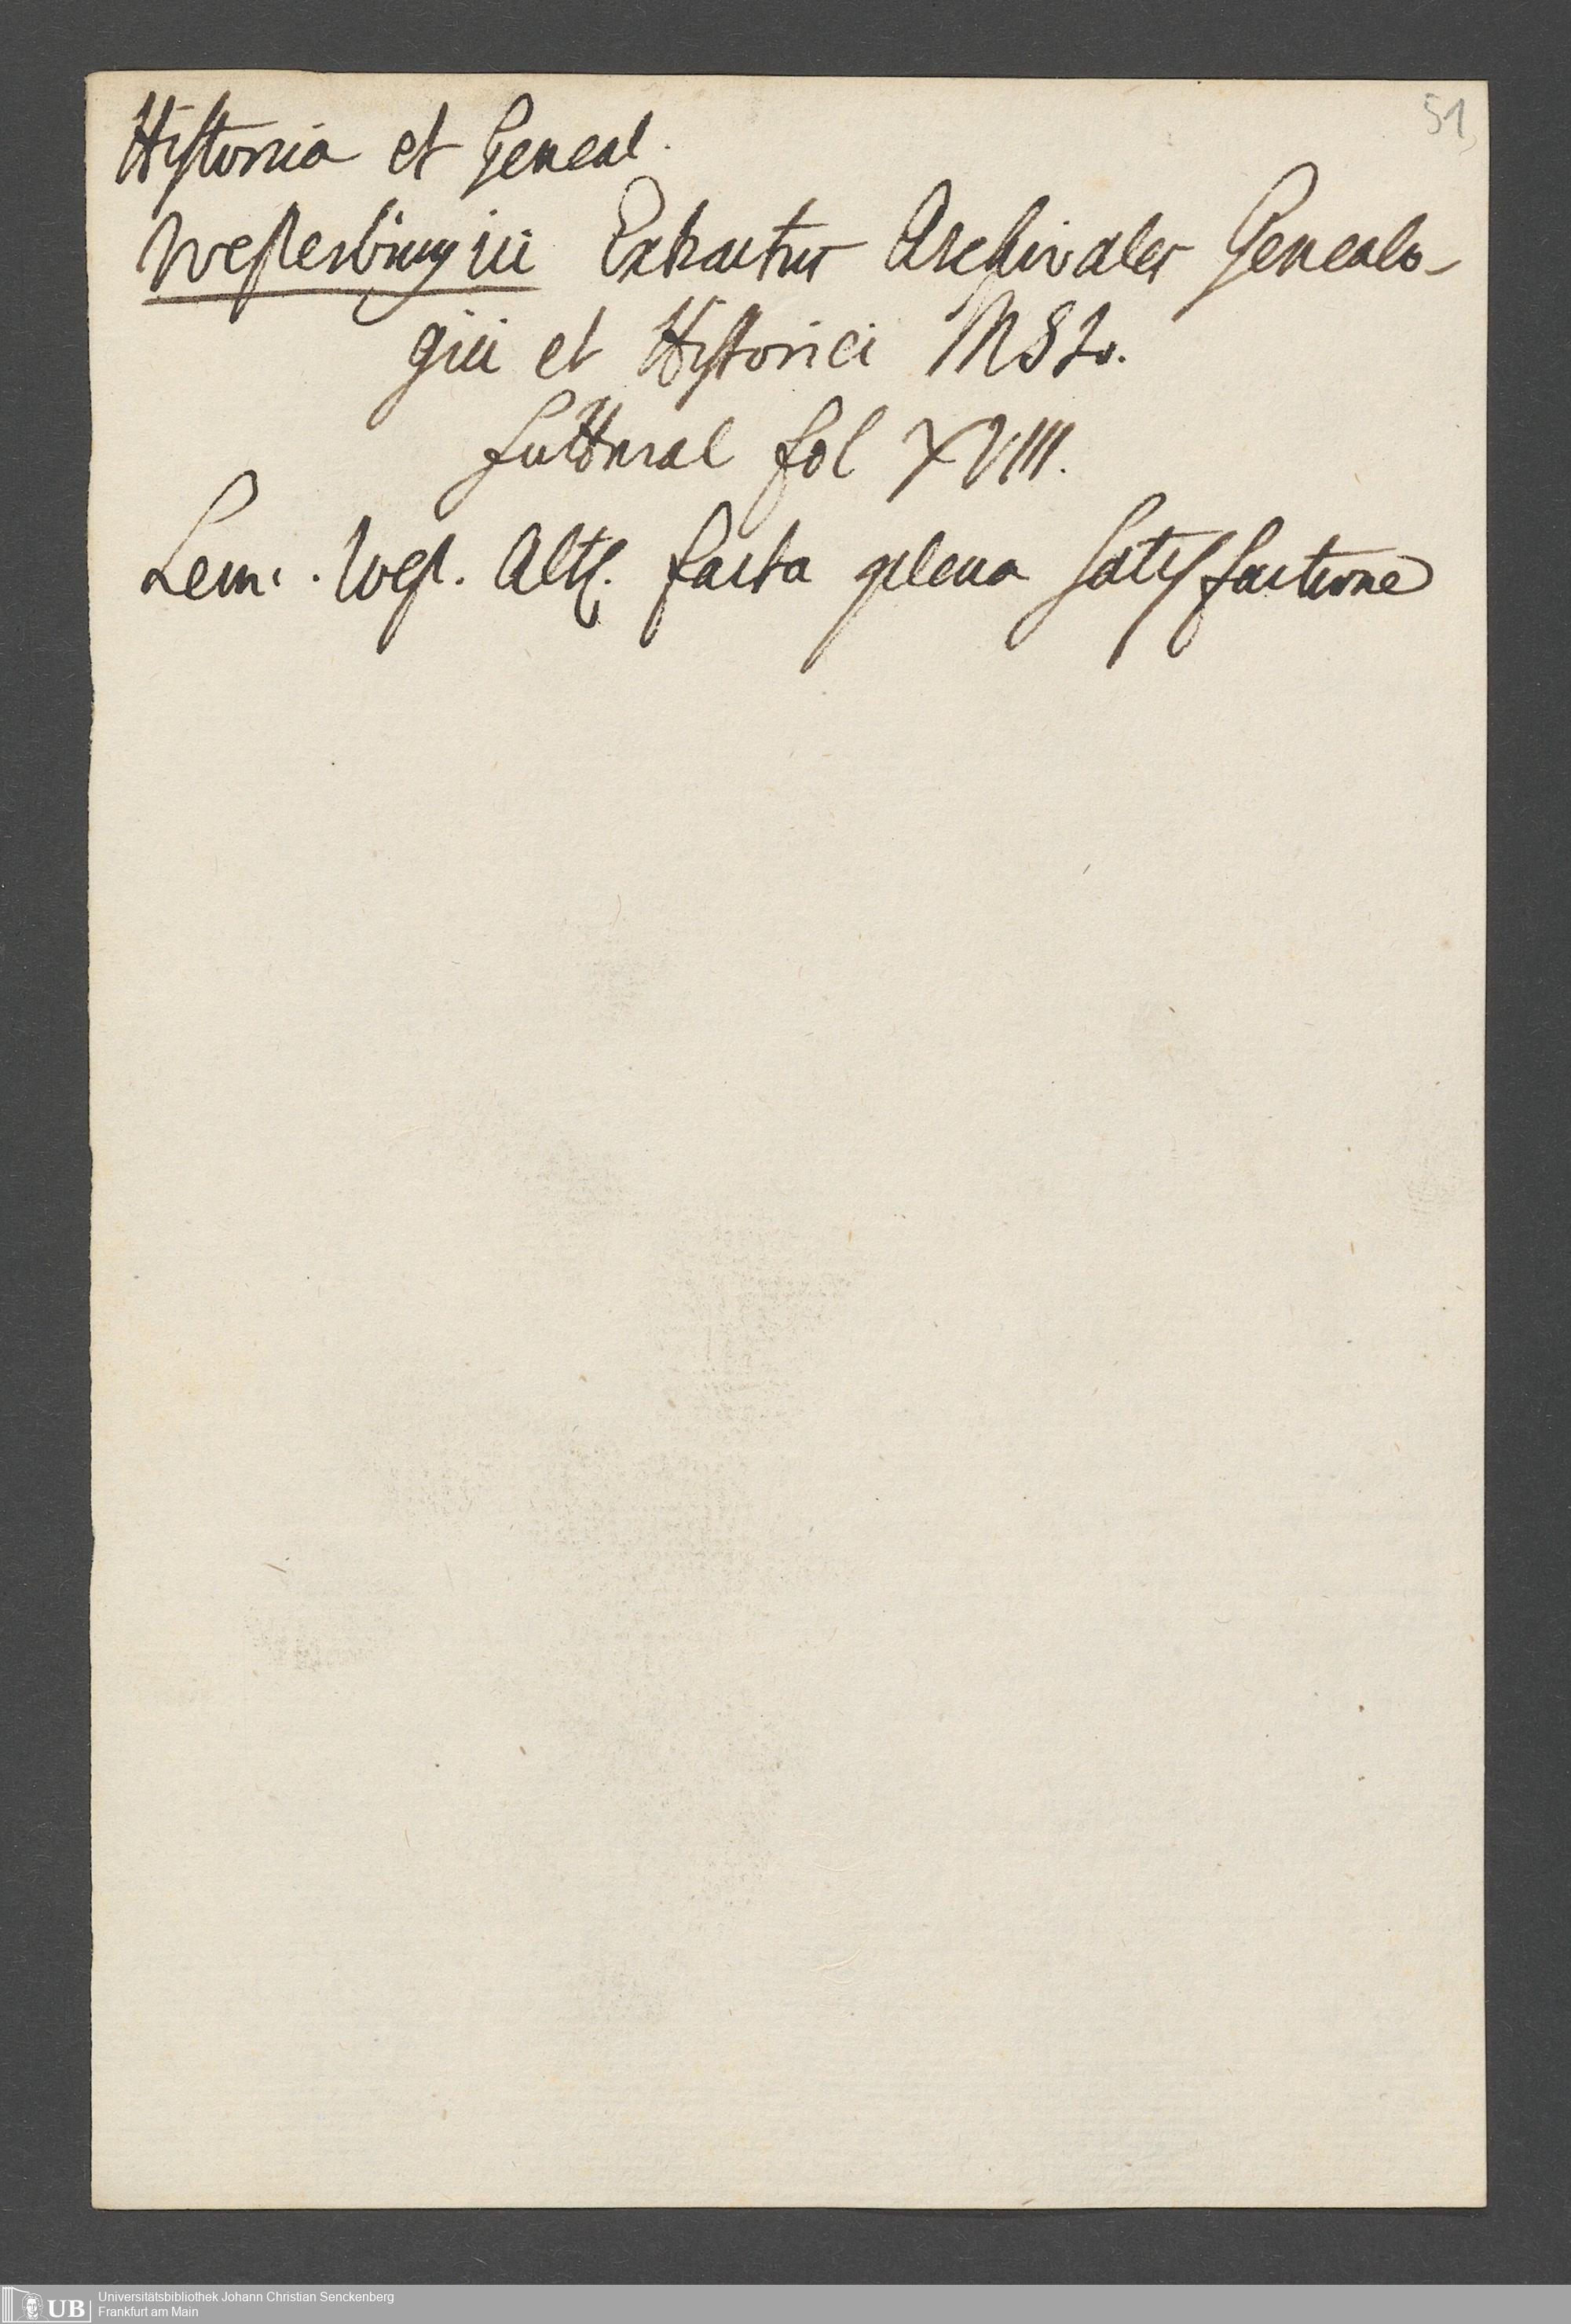 51
Historia et Geneal.
Westerburgici Extractus Archivales Genealo-
gici et Historici MSto.
Futteral fol XVIII.
West. facta plena Satisfactione
UB
Universitätsbibliothek Johann Christian Senckenberg
Frankfurt am Main